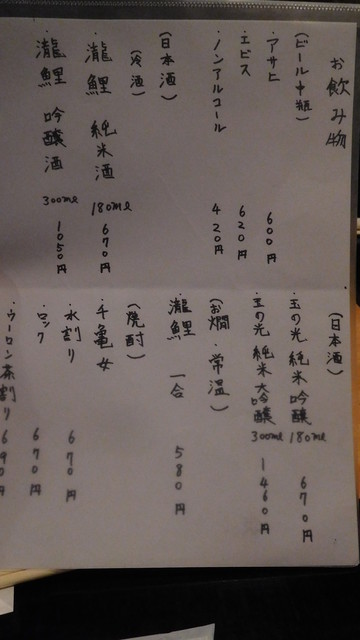 お飲み物
(ビール中瓶)
・アサヒ 600円
・エビス 620円
・ノンアルコール 420円
(日本酒)
(冷酒)
・瀧鯉 純米酒 180ml 670円
・瀧鯉 吟醸酒 300ml 1050円
(日本酒)
・玉の光 純米吟醸 180ml 670円
・玉の光 純米大吟醸 300ml 1460円
(お燗・常温)
瀧鯉 一合 580円
(焼酎)
・千亀女
・水割り 670円
・ロック 670円
・ウーロン茶割り 690円